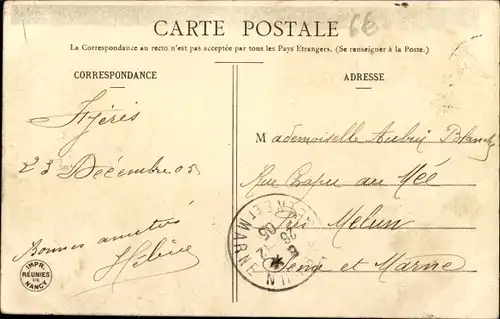 CARTE POSTALE
6€
La Correspondance au recto n'est pas acceptée par tous les Pays Etrangers. (Se renseigner à la Poste.)
CORRESPONDANCE
ADRESSE
23 Décembre 05
Bonnes amitiés
Hélène
Mademoiselle Aubry Blanche
Rue Chapu au Mée
Près Melun
Seine et Marne
ET MARNE
05
IMP.
RÉUNIES
DE
NANCY